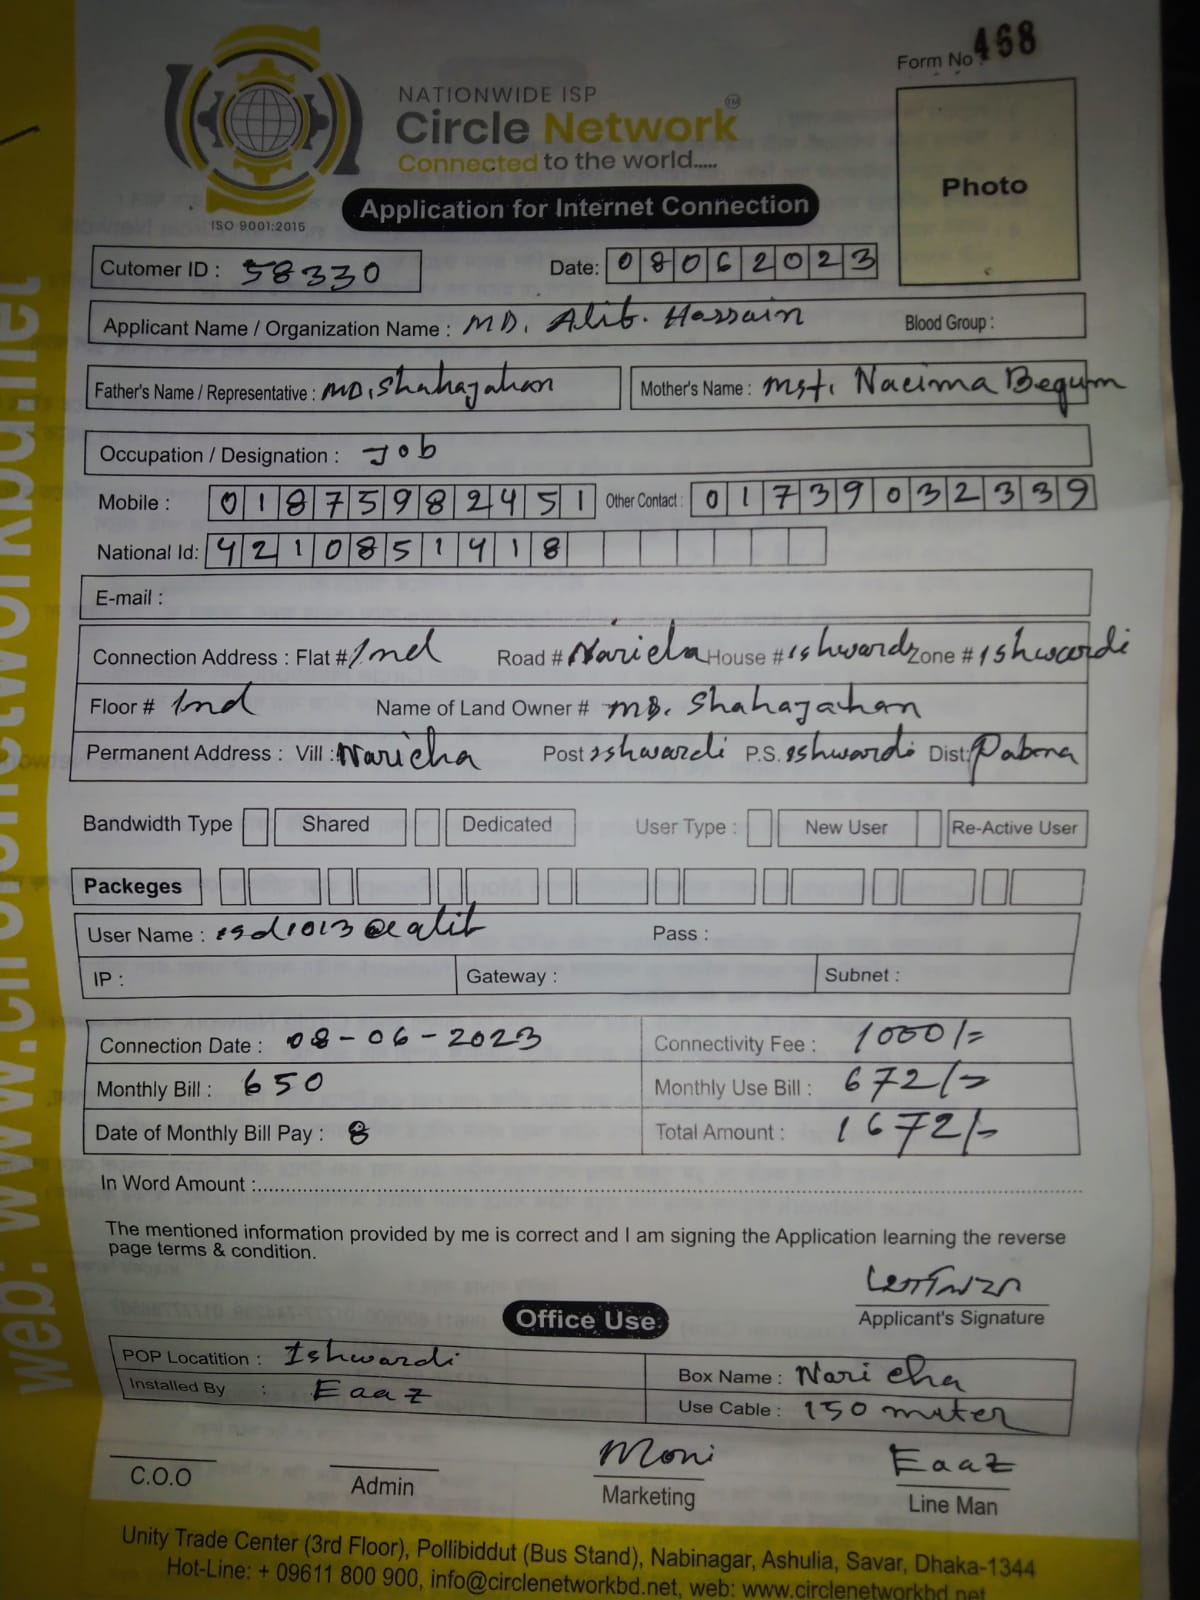 Form No 468
NATIONWIDE ISP
Circle Network TM
Connected to the world.....
ISO 9001:2015
Application for Internet Connection
Photo
Cutomer ID : 58330 Date: 08062023
Applicant Name / Organization Name : MD. Alib. Hossain Blood Group :
Father's Name / Representative : MD. Shahajahan Mother's Name : Mst. Nacima Begum
Occupation / Designation : Job
Mobile : 01875982451 Other Contact : 01739032339
National Id: 4210851418
E-mail :
Connection Address : Flat # 1nd Road # Naricha House # ishwardi Zone # ishwardi
Floor # 1nd Name of Land Owner # MD. Shahajahan
Permanent Address : Vill : Naricha Post ishwardi P.S. ishwardi Dist: Pabna
Bandwidth Type Shared Dedicated User Type : New User Re-Active User
Packeges
User Name : isd1013@alib Pass :
IP : Gateway : Subnet :
Connection Date : 08-06-2023 Connectivity Fee : 1000/=
Monthly Bill : 650 Monthly Use Bill : 672/=
Date of Monthly Bill Pay : 8 Total Amount : 1672/-
In Word Amount :
The mentioned information provided by me is correct and I am signing the Application learning the reverse
page terms & condition.
Applicant's Signature
Office Use
POP Locatition : Ishwardi Box Name : Naricha
Installed By : Eaaz Use Cable : 150 meter
Moni Eaaz
C.O.O Admin Marketing Line Man
Unity Trade Center (3rd Floor), Pollibiddut (Bus Stand), Nabinagar, Ashulia, Savar, Dhaka-1344
Hot-Line: + 09611 800 900, info@circlenetworkbd.net, web: www.circlenetworkbd.net
web: www.circlenetworkbd.net